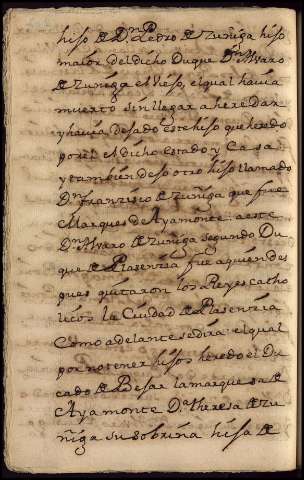 hijo de Dn Pedro de Zuniga hijo
maior del dicho Duque Dn Alvaro
de Zuniga el viejo, el qual havia
muerto sin llegar a heredar
y havia dejado este hijo que heredo
por el el dicho estado y Casa
y tambien dejo otro hijo llamado
Dn franzisco de Zuñiga que fue
Marques de Ayamonte: a este
Dn Alvaro de Zuniga segundo Du
que de Plasenzia fue a quien des
pues quitaron los Reyes catho
licos la Ciudad de Plasenzia
Como adelante se dirá: el qual
por no tener hijos heredo el Du
cado de Bejar la marquesa de
Ayamonte Da theresa de Zu
ñiga su sobrina hija de